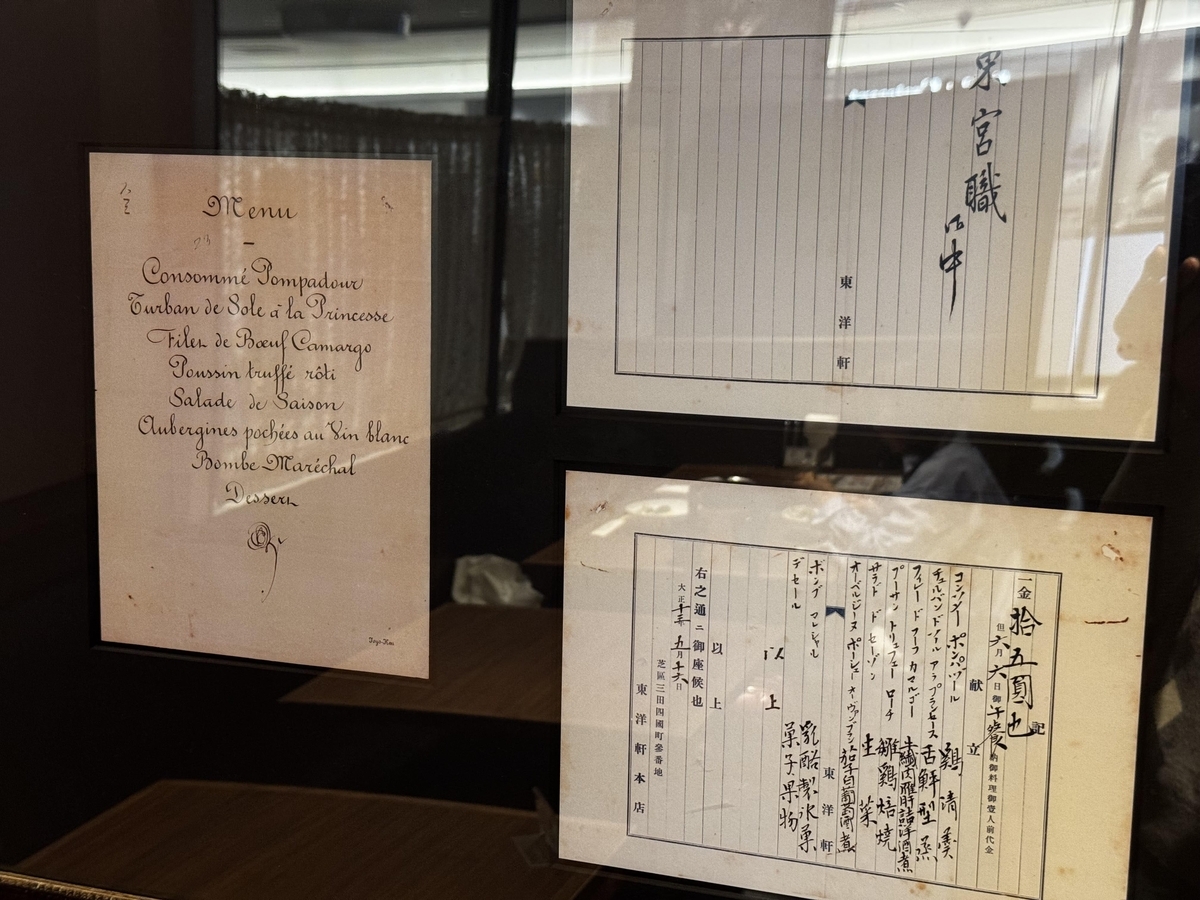 Menu
Consommé Pompadour
Turban de Sole à la Princesse
Filet de Bœuf Camargo
Poussin truffé rôti
Salade de Saison
Aubergines pochées au Vin blanc
Bombe Maréchal
Dessert
宮職
御中
東洋軒
記
一金拾五圓也
但六月六日御午餐御料理御壹人前代金
献立
コンソメー ポンパヅール 鷄清羹
チュルバン ド ソール アラ プランセース 舌鮃型蒸
フィレー ド ブーフ カマルゴー
プーサン トリュフェー ローチ 雛鷄焙燒
サラド ド セーゾン 生菜
オーベルジーヌ ポーシェー オーヴァンブラン 茄子白葡萄酒煮
東洋軒
ボンブ マレシャル 乳酪製氷菓
デセール 菓子果物
以上
以上
右之通ニ御座候也
五月十六日
芝區三田四國町參番地
東洋軒本店